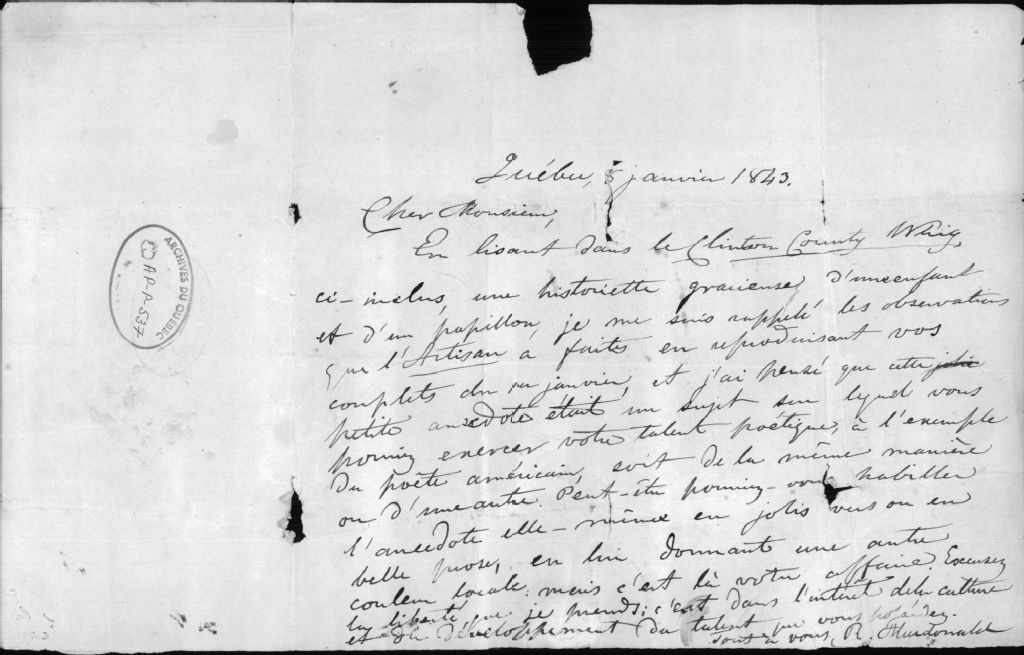 Québec, 8 janvier 1843.
Cher Monsieur,
En lisant dans le Clinton County Whig,
ci-inclus, une historiette gracieuse d'un enfant
et d'un papillon, je me suis rappelé les observations
que l'Artisan a faites en reproduisant vos
couplets du 1er janvier, et j'ai pensé que cette jolie
petite anecdote était un sujet sur lequel vous
pourriez exercer votre talent poétique, à l'exemple
du poëte américain, soit de la même manière
ou d'une autre. Peut-être pourriez-vous habiller
l'anecdote elle-même en jolis vers ou en
belle prose, en lui donnant une autre
couleur locale; mais c'est là votre affaire. Excusez
la liberté que je prends; c'est dans l'intérêt de la culture
et du développement du talent que vous possédez.
Tout à vous, R. Macdonald
ARCHIVES DU QUÉBEC
AP-P-537